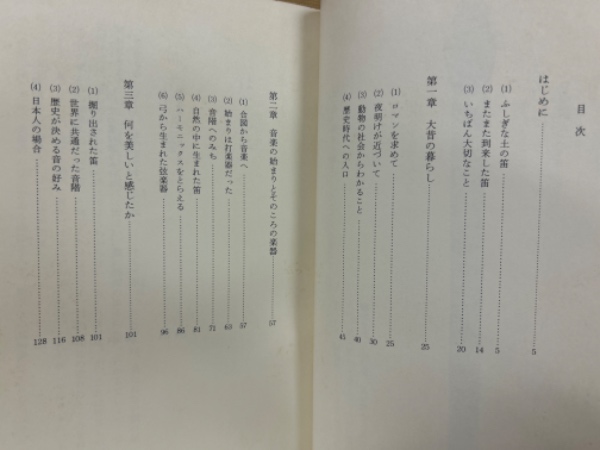 目次
はじめに 5
(1) ふしぎな土の笛 5
(2) またまた到来した笛 14
(3) いちばん大切なこと 20
第一章 大昔の暮らし 25
(1) ロマンを求めて 25
(2) 夜明けが近づいて 30
(3) 動物の社会からわかること 40
(4) 歴史時代への入口 45
第二章 音楽の始まりとそのころの楽器 57
(1) 合図から音楽へ 57
(2) 始まりは打楽器だった 63
(3) 音階へのみち 71
(4) 自然の中に生まれた笛 81
(5) ハーモニックスをとらえる 86
(6) 弓から生まれた弦楽器 96
第三章 何を美しいと感じたか 101
(1) 掘り出された笛 101
(2) 世界に共通だった音階 108
(3) 歴史が決める音の好み 116
(4) 日本人の場合 128